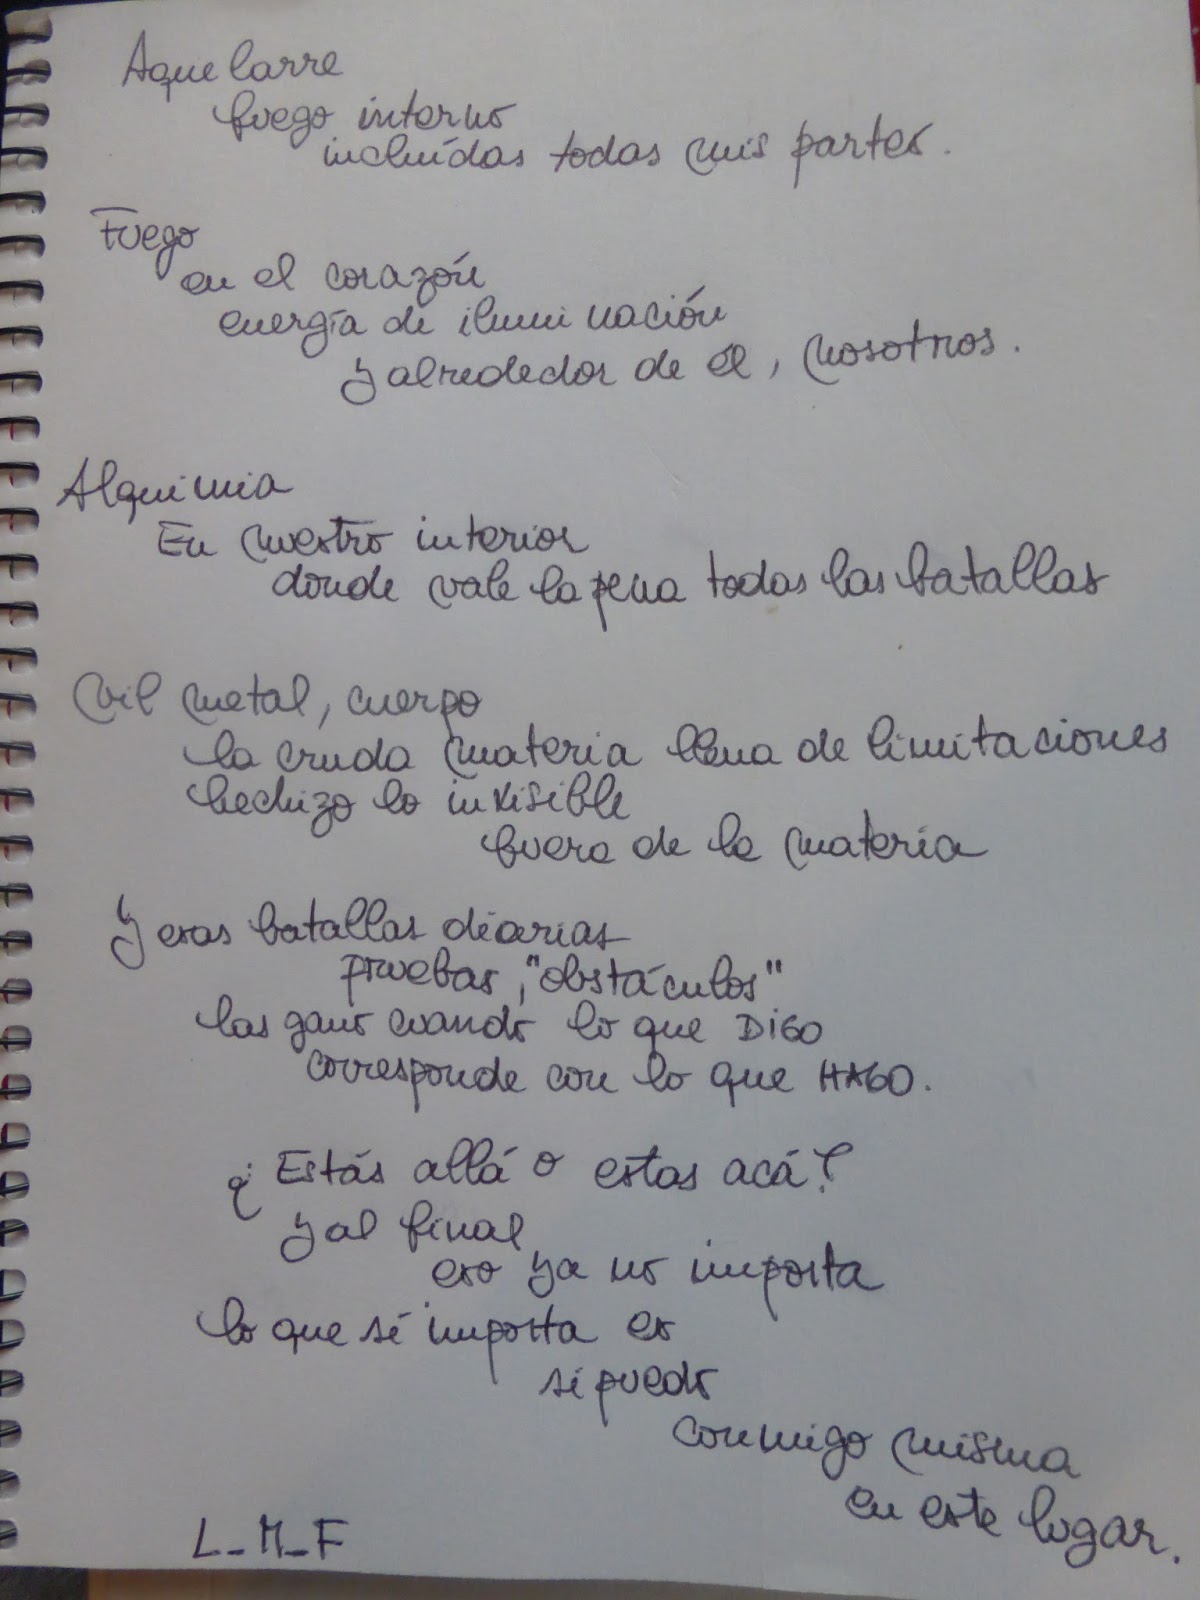 Aquelarre
fuego interno
incluídas todas mis partes.
Fuego
en el corazón
energía de iluminación
y alrededor de él, nosotros.
Alquimia
En nuestro interior
donde vale la pena todas las batallas
Vil metal, cuerpo
la cruda materia llena de limitaciones
hechizo lo invisible
fuera de la materia
Y esas batallas diarias
pruebas, "obstáculos"
las gano cuando lo que DIGO
corresponde con lo que HAGO.
¿Estás allá o estas acá?
y al final
eso ya no importa
lo que sí importa es
si puedo
conmigo misma
en este lugar.
L_M_F